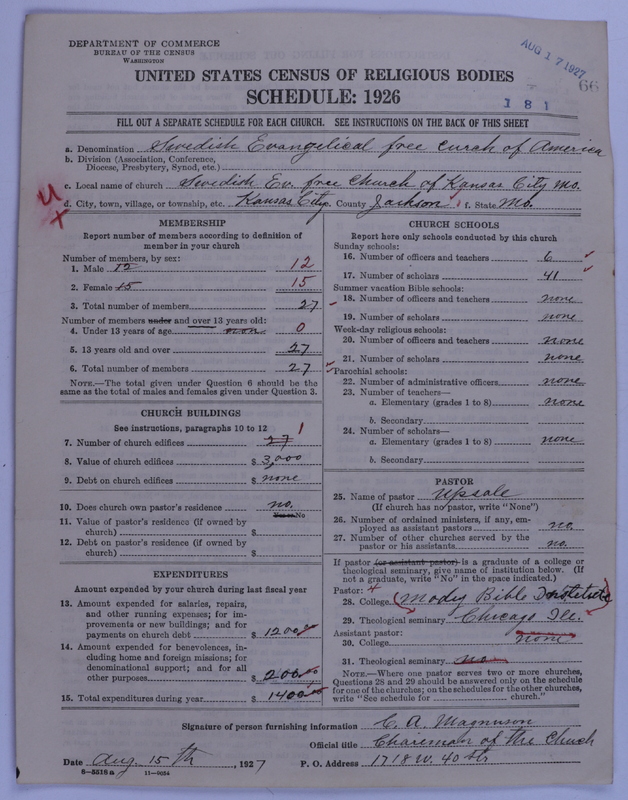 DEPARTMENT OF COMMERCE
BUREAU OF THE CENSUS
WASHINGTON
AUG 17 1927
66
UNITED STATES CENSUS OF RELIGIOUS BODIES
SCHEDULE: 1926
1 8 1
FILL OUT A SEPARATE SCHEDULE FOR EACH CHURCH. SEE INSTRUCTIONS ON THE BACK OF THIS SHEET
a. Denomination Swedish Evangelical free curch of America
b. Division (Association, Conference, Diocese, Presbytery, Synod, etc.)
c. Local name of church Swedish Ev. free Church of Kansas City Mo.
d. City, town, village, or township, etc. Kansas City e. County Jackson f. State Mo.
MEMBERSHIP
Report number of members according to definition of
member in your church
Number of members, by sex:
1. Male 12 12
2. Female 15 15
3. Total number of members 27
Number of members under and over 13 years old:
4. Under 13 years of age non 0
5. 13 years old and over 27
6. Total number of members 27
NOTE.—The total given under Question 6 should be the
same as the total of males and females given under Question 3.
CHURCH BUILDINGS
See instructions, paragraphs 10 to 12
7. Number of church edifices 27 1
8. Value of church edifices $ 3,000
9. Debt on church edifices $ none
10. Does church own pastor's residence no.
Yes or No
11. Value of pastor's residence (if owned by
church) $
12. Debt on pastor's residence (if owned by
church) $
EXPENDITURES
Amount expended by your church during last fiscal year
13. Amount expended for salaries, repairs,
and other running expenses; for im-
provements or new buildings; and for
payments on church debt $ 1200 00
14. Amount expended for benevolences, in-
cluding home and foreign missions; for
denominational support; and for all
other purposes $ 200 00
15. Total expenditures during year $ 1400 00
CHURCH SCHOOLS
Report here only schools conducted by this church
Sunday schools:
16. Number of officers and teachers 6
17. Number of scholars 41
Summer vacation Bible schools:
18. Number of officers and teachers none
19. Number of scholars none
Week-day religious schools:
20. Number of officers and teachers none
21. Number of scholars none
Parochial schools:
22. Number of administrative officers none
23. Number of teachers—
a. Elementary (grades 1 to 8) none
b. Secondary
24. Number of scholars—
a. Elementary (grades 1 to 8) none
b. Secondary
PASTOR
25. Name of pastor Upsale
(If church has no pastor, write "None")
26. Number of ordained ministers, if any, em-
ployed as assistant pastors no.
27. Number of other churches served by the
pastor or his assistants no.
If pastor (or assistant pastor) is a graduate of a college or
theological seminary, give name of institution below. (If
not a graduate, write "No" in the space indicated.)
Pastor:
28. College (Mody Bible Institute)
29. Theological seminary Chicago Ill.
Assistant pastor:
30. College none
31. Theological seminary no
NOTE.—Where one pastor serves two or more churches,
Questions 28 and 29 should be answered only on the schedule
for one of the churches; on the schedules for the other churches,
write "See schedule for church."
Signature of person furnishing information C. A. Magnuson
Official title Chairman of the Chuch
Date Aug. 15 th, 1927 P. O. Address 1718 W. 40 Str
8-5518 a 11-9054